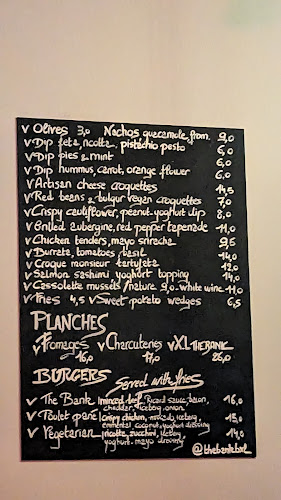 v Olives 3,0 Nachos guacamole, from. 9,0
v Dip feta, ricotta, pistachio pesto 6,0
v Dip pies & mint 6,0
v Dip hummus, carrot, orange flower 6,0
v Artisan cheese croquettes 14,5
v Red beans & bulgur vegan croquettes 7,0
v Crispy cauliflower, peanut-yoghurt dip 8,0
v Grilled aubergine, red pepper tapenade 11,0
v Chicken tenders, mayo sriracha 9,5
v Burrata, tomatoes, basil 14,0
v Croque monsieur tartufata 12,0
v Salmon sashimi yoghurt topping 14,0
v Cassolette mussels/nature 9,0 - white wine 11,0
v Fries 4,5 v Sweet potato wedges 6,5
PLANCHES
v Fromages v Charcuteries v XL THE BANK
16,0 17,0 26,0
BURGERS Served with fries
v The Bank (minced beef, Ricard sauce, bacon, 16,0
cheddar, iceberg, onion
v Poulet pané (crispy chicken, avocado, iceberg, 15,0
emmental, coconut, yoghurt dressing
v Vegetarian (ricotta, zucchini, iceberg 14,0
yoghurt-mayo dressing
@thebankbxl